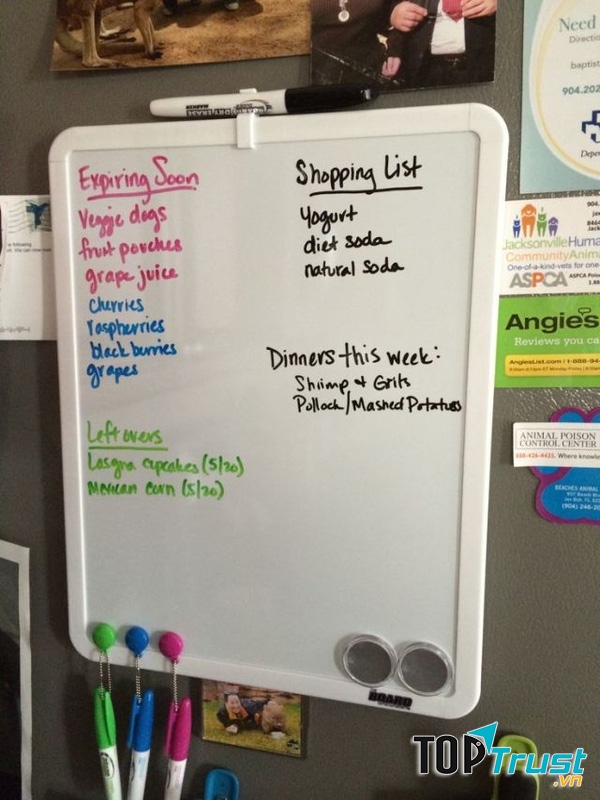 Expiring Soon
Veggie dogs
fruit pouches
grape juice
cherries
raspberries
blackberries
grapes
Leftovers
Lasgna cupcakes (5/20)
Mexican corn (5/20)
Shopping List
yogurt
diet soda
natural soda
Dinners this week:
Shrimp & Grits
Pollock/Mashed Potatoes
DRY ERASE
BOARD
Need
Directi
baptist
904.202
Depen
904.
Jacksonville Huma
Community Anima
One-of-a-kind-vets for one-
ASPCA
ASPCA Poiso
Angie's
Reviews you ca
AngiesList.com | 1-888-94
ANIMAL POISON
CONTROL CENTER
888-426-4435.
Where knowle
BEACHES ANIMAL
(904) 246-20
TOPTrust.vn